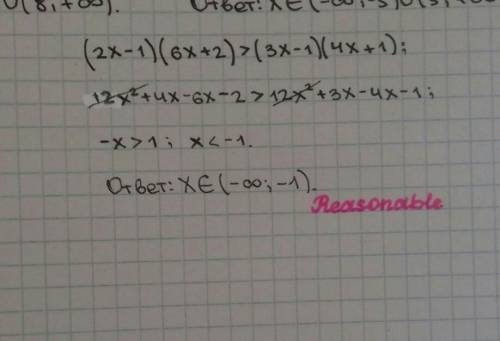 ∪(8;+∞). Ответ: x∈(-∞;-3)∪(3;+∞)
(2x-1)(6x+2)>(3x-1)(4x+1);
12x²+4x-6x-2>12x²+3x-4x-1;
-x>1; x<-1.
Ответ: x∈(-∞;-1).
Reasonable